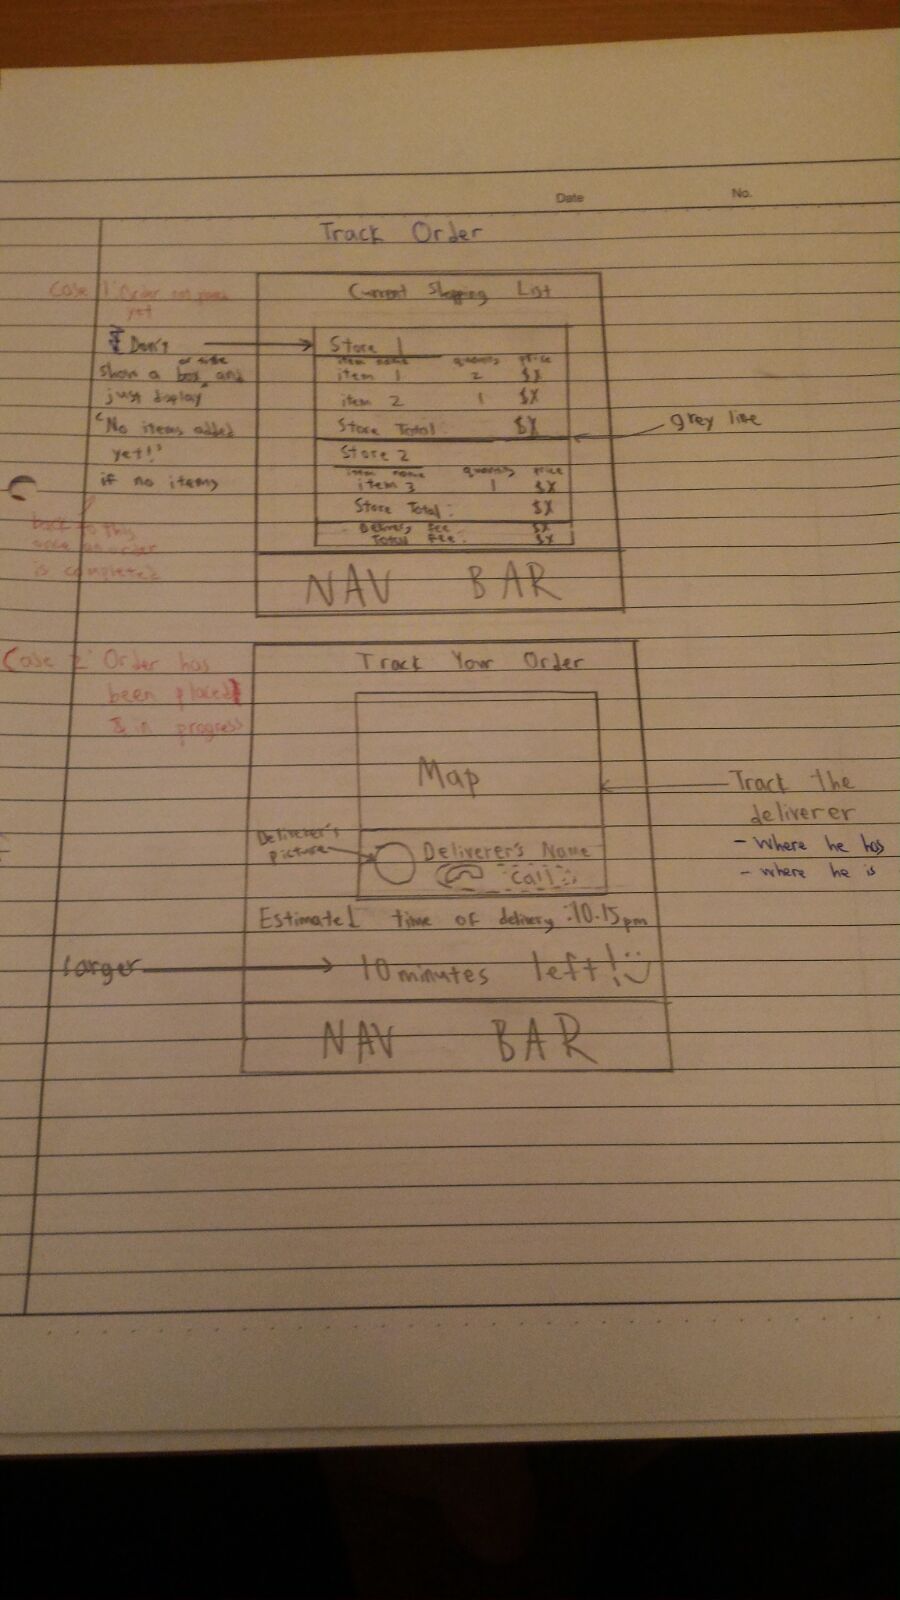 Date
No.
Track Order
Case 1: Order not placed
yet
Current Shopping List
Don't
or title
show a box and
just display
"No items added
yet!"
if no items
back to this
once an order
is completed
Store 1
item name quantity price
item 1 2 $X
item 2 1 $X
Store Total: $X
grey line
Store 2
item name quantity price
item 3 1 $X
Store Total: $X
Delivery fee $X
Total fee: $X
NAV BAR
Case 2: Order has
been placed
& in progress
Track Your Order
Map
Track the
deliverer
- Where he has
- where he is
Deliverer's
picture
Deliverer's Name
Call
Estimated time of delivery: 10.15pm
larger
10 minutes left! :)
NAV BAR